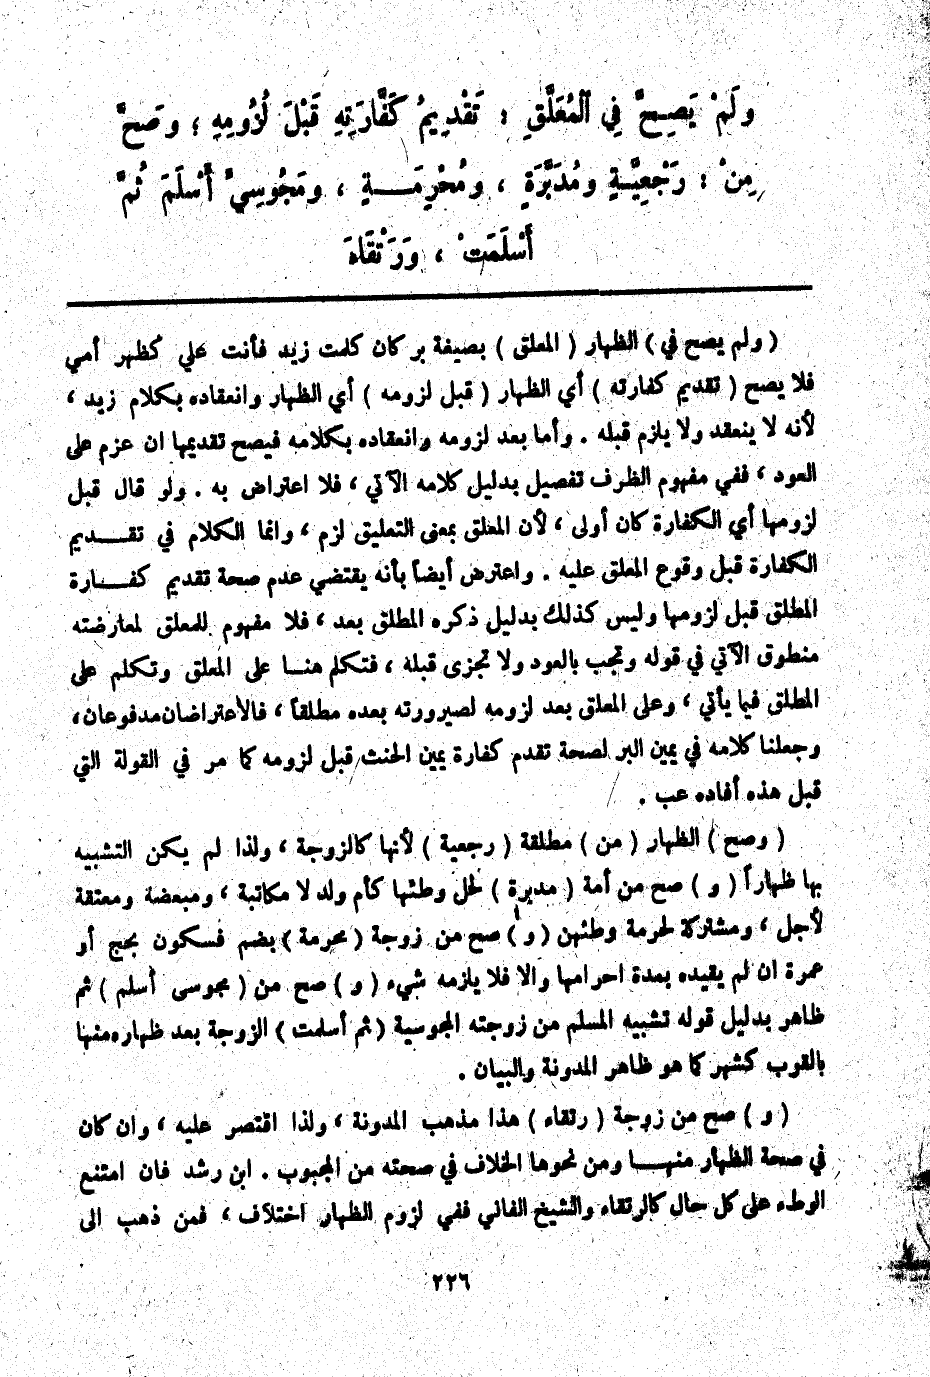 ولَمْ يَصِحَّ فِي ٱلْمُعَلَّقِ : تَقْدِيمُ كَفَّارَتِهِ قَبْلَ لُزُومِهِ ؛ وصَحَّ
مِنْ : رَجْعِيَّةٍ ومُدَبَّرَةٍ ، ومُحْرِمَةٍ ، ومَجُوسِيٍّ أَسْلَمَ ثُمَّ
أَسْلَمَتْ ، وَرَتْقَاءَ
( ولم يصح في ) الظهار ( المعلق ) بصيغة بر كان كلمت زيد فأنت علي كظهر أمي
فلا يصح ( تقديم كفارته ) أي الظهار ( قبل لزومه ) أي الظهار وانعقاده بكلام زيد ،
لأنه لا ينعقد ولا يلزم قبله . وأما بعد لزومه وانعقاده بكلامه فيصح تقديمها ان عزم على
العود ، ففي مفهوم الظرف تفصيل بدليل كلامه الآتي ، فلا اعتراض به . ولو قال قبل
لزومها أي الكفارة كان أولى ، لأن المعلق بمعنى التعليق لزم ، وانما الكلام في تقديم
الكفارة قبل وقوع المعلق عليه . واعترض أيضاً بأنه يقتضي عدم صحة تقديم كفارة
المطلق قبل لزومها وليس كذلك بدليل ذكره المطلق بعد ، فلا مفهوم للمعلق لمعارضته
منطوق الآتي في قوله وتجب بالعود ولا تجزى قبله ، فتكلم هنا على المعلق وتكلم على
المطلق فيما يأتي ، وعلى المعلق بعد لزومه لصيرورته بعده مطلقاً ، فالأعتراضان مدفوعان،
وجعلنا كلامه في يمين البر لصحة تقدم كفارة يمين الحنث قبل لزومه كما مر في القولة التي
قبل هذه أفاده عب .
( وصح ) الظهار ( من ) مطلقة ( رجعية ) لأنها كالزوجة ، ولذا لم يكن التشبيه
بها ظهاراً ( و ) صح من أمة ( مدبرة ) لحل وطئها كأم ولد لا مكاتبة ، ومبعضة ومعتقة
لأجل ، ومشتركة لحرمة وطئهن ( و ) صح من زوجة ( محرمة ) بضم فسكون بحج أو
عمرة ان لم يقيده بمدة احرامها والا فلا يلزمه شيء ( و ) صح من ( مجوسى أسلم ) ثم
ظاهر بدليل قوله تشبيه المسلم من زوجته المجوسية ( ثم أسلمت ) الزوجة بعد ظهاره منها
بالقوب كشهر كما هو ظاهر المدونة والبيان .
( و ) صح من زوجة ( رتقاء ) هذا مذهب المدونة ، ولذا اقتصر عليه ، وان كان
في صحة الظهار منها ومن نحوها الخلاف في صحته من المجبوب . ابن رشد فان امتنع
الوطء على كل حال كالرتقاء والشيخ الفاني ففي لزوم الظهار اختلاف ، فمن ذهب الى
٢٢٦